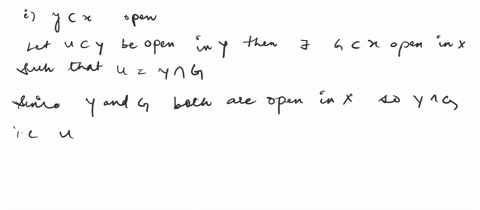 i) Y ⊂ X open
Let U ⊂ Y be open in Y then ∃ G ⊂ X open in X
such that U = Y ∩ G
Since Y and G both are open in X so Y ∩ G
i.e U